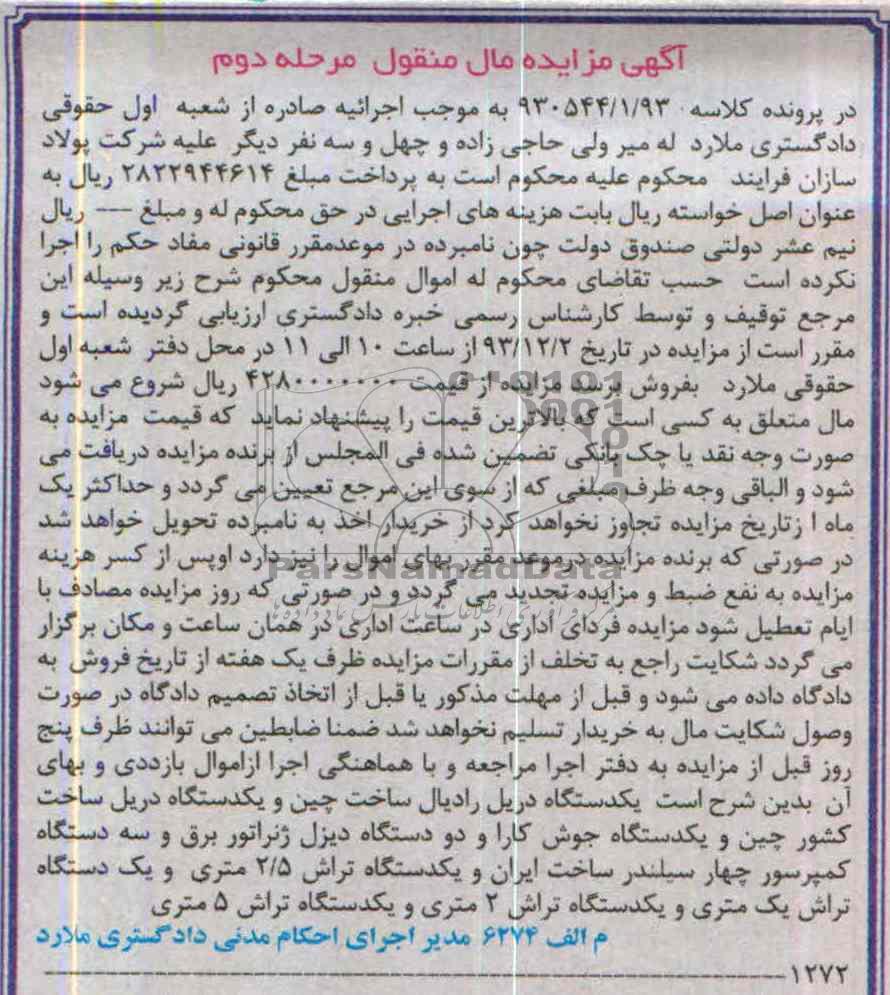 آگهی مزایده مال منقول مرحله دوم
در پرونده کلاسه ۹۳۰۵۴۴/۱/۹۳ به موجب اجرائیه صادره از شعبه اول حقوقی
دادگستری ملارد له میر ولی حاجی زاده و چهل و سه نفر دیگر علیه شرکت پولاد
سازان فرایند محکوم علیه محکوم است به پرداخت مبلغ ۲۸۲۲۹۴۴۶۱۴ ریال به
عنوان اصل خواسته ریال بابت هزینه های اجرایی در حق محکوم له و مبلغ --- ریال
نیم عشر دولتی صندوق دولت چون نامبرده در موعدمقرر قانونی مفاد حکم را اجرا
نکرده است حسب تقاضای محکوم له اموال منقول محکوم شرح زیر وسیله این
مرجع توقیف و توسط کارشناس رسمی خبره دادگستری ارزیابی گردیده است و
مقرر است از مزایده در تاریخ ۹۳/۱۲/۲ از ساعت ۱۰ الی ۱۱ در محل دفتر شعبه اول
حقوقی ملارد بفروش برسد مزایده از قیمت ریال شروع می شود
مال متعلق به کسی است که بالاترین قیمت را پیشنهاد نماید که قیمت مزایده به
صورت وجه نقد یا چک بانکی تضمین شده فی المجلس از برنده مزایده دریافت می
شود و الباقی وجه ظرف مبلغی که از سوی این مرجع تعیین می گردد و حداکثر یک
ماه ا زتاریخ مزایده تجاوز نخواهد کرد از خریدار اخذ به نامبرده تحویل خواهد شد
در صورتی که برنده مزایده درموعد مقرر بهای اموال را نیز دارد اوپس از کسر هزینه
ParsNamadData
مزایده به نفع ضبط و مزایده تجدید می گردد و در صورتی که روز مزایده مصادف با
ایام تعطیل شود مزایده فردای اداری در ساعت اداری در همان ساعت و مکان برگزار
می گردد شکایت راجع به تخلف از مقررات مزایده ظرف یک هفته از تاریخ فروش به
دادگاه داده می شود و قبل از مهلت مذکور یا قبل از اتخاذ تصمیم دادگاه در صورت
وصول شکایت مال به خریدار تسلیم نخواهد شد ضمنا ضابطین می توانند ظرف پنج
روز قبل از مزایده به دفتر اجرا مراجعه و با هماهنگی اجرا ازاموال بازددی و بهای
آن بدین شرح است یکدستگاه دریل رادیال ساخت چین و یکدستگاه دریل ساخت
کشور چین و یکدستگاه جوش کارا و دو دستگاه دیزل ژنراتور برق و سه دستگاه
کمپرسور چهار سیلندر ساخت ایران و یکدستگاه تراش ۲/۵ متری و یک دستگاه
تراش یک متری و یکدستگاه تراش ۲ متری و یکدستگاه تراش ۵ متری
م الف ۶۲۷۴ مدیر اجرای احکام مدنی دادگستری ملارد
۱۲۷۲